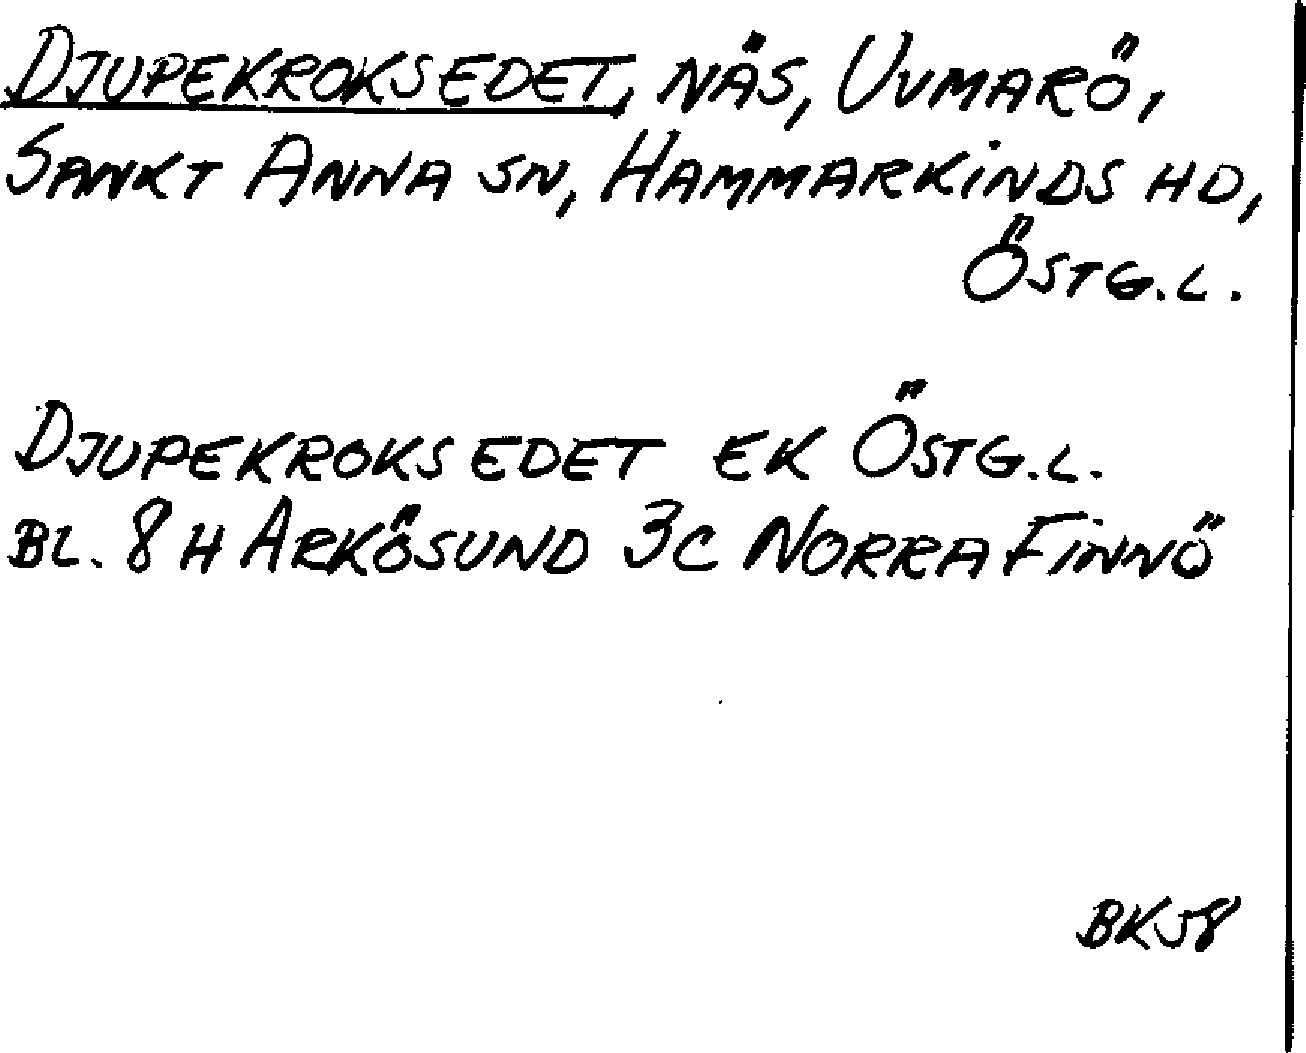 DJUPEKROKSEDET, NÄS, UVMARÖ,
SANKT ANNA SN, HAMMARKINDS HD,
ÖSTG.L.
DJUPEKROKSEDET EK ÖSTG.L.
BL. 8H ARKÖSUND 3C NORRA FINNÖ
BK58